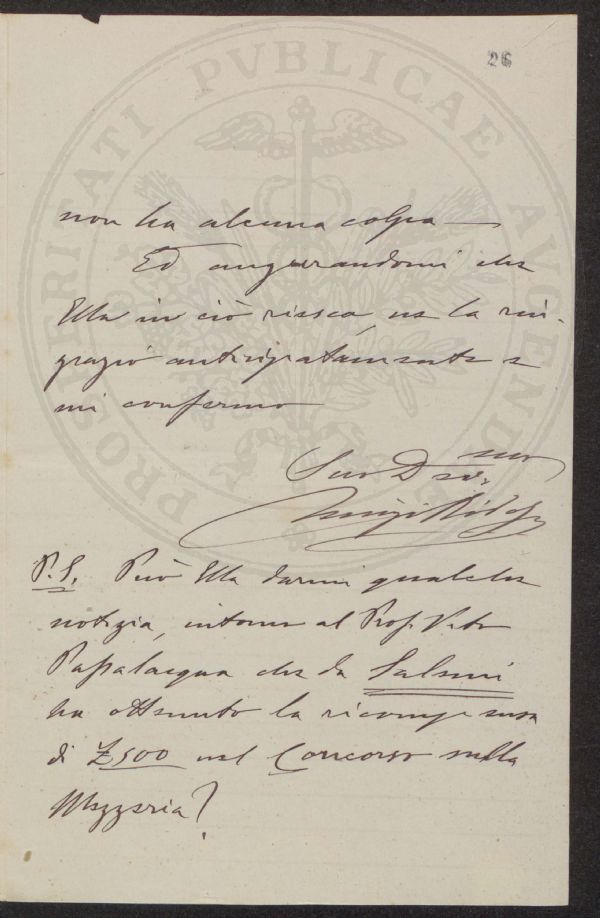 26
PROSPERITATI PVBLICAE AVGENDAE
non ha alcuna colpa
Ed augurandomi che
Ella in ciò riesca, ne la rin-
grazio anticipatamente e
mi confermo
Suo D mo
Luigi
P.S. Può Ella darmi qualche
notizia, intorno al Prof. Vito
Passalacqua che da Salemi
ha ottenuto la ricompensa
di £500 nel Concorso sulla
Mezzeria?